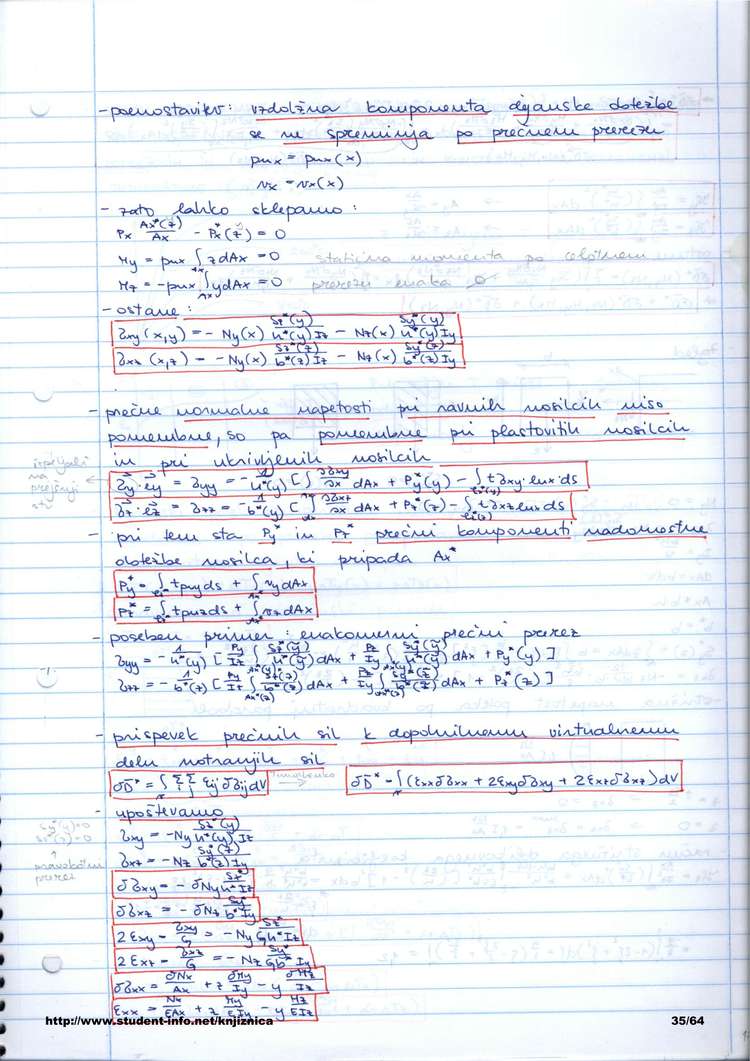 - poenostavitev: vzdolžna komponenta dejanske obtežbe
se ne spreminja po prečnem prerezu
pnx = pnx(x)
vx = vx(x)
- zato lahko sklepamo:
Px Ax*(z)/Ax - Px*(z) = 0
My = pnx ∫Ax z dAx = 0 statična momenta po celotnem
Mz = -pnx ∫Ax y dAx = 0 prerezu enaka 0
- ostane:
σxy (x,y) = - Ny(x) Sz*(y)/h*(y)Iz - Nz(x) Sy*(y)/h*(y)Iy
σxz (x,z) = - Ny(x) Sz*(z)/b*(z)Iz - Nz(x) Sy*(z)/b*(z)Iy
- prečne normalne napetosti pri ravnih nosilcih niso
pomembne, so pa pomembne pri plastovitih nosilcih
in pri ukrivljenih nosilcih
izpeljali
na
prejšnji
σy·ey = σyy = - 1/h*(y) [∫ ∂σxy/∂x dAx + Py*(y) - ∫ t σxy·enx·ds
σz·ez = σzz = - 1/b*(y) [∫ ∂σxz/∂x dAx + Pz*(z) - ∫ t σxz enx ds
- pri tem sta Py* in Pz* prečni komponenti nadomestne
obtežbe nosilca, ki pripada Ax*
Py* = ∫ t pny ds + ∫ vy dAx
Pz* = ∫ t pnz ds + ∫ vz dAx
- poseben primer: enakomerni prečni prerez
σyy = - 1/h*(y) [ Py/Iz ∫ Sz*(y)/h*(y) dAx + Pz/Iy ∫ Sy*(y)/h*(y) dAx + Py*(y) ]
σzz = - 1/b*(z) [ Py/Iz ∫ Sz*(z)/b*(z) dAx + Pz/Iy ∫ Sy*(z)/b*(z) dAx + Pz*(z) ]
- prispevek prečnih sil k dopolnilnemu virtualnemu
delu notranjih sil
δD* = ∫ Σ Σ εij δσij dV Timošenko → δD* = ∫ (εxx δσxx + 2εxy δσxy + 2εxz δσxz) dV
- upoštevamo
Sy*(y)=0
Sz*(z)=0
pravokotni
prerez
σxy = -Ny Sz*(y)/h*(y) Iz
σxz = -Nz Sy*(z)/b*(z) Iy
δσxy = - δNy Sz*/h* Iz
δσxz = - δNz Sy*/b* Iy
2 εxy = σxy/G = - Ny Sz*/G h* Iz
2 εxz = σxz/G = - Nz Sy*/G b* Iy
δσxx = δNx/Ax + z δMy/Iy - y δMz/Iz
εxx = Nx/EAx + z My/EIy - y Mz/EIz
http://www.student-info.net/knjiznica 35/64